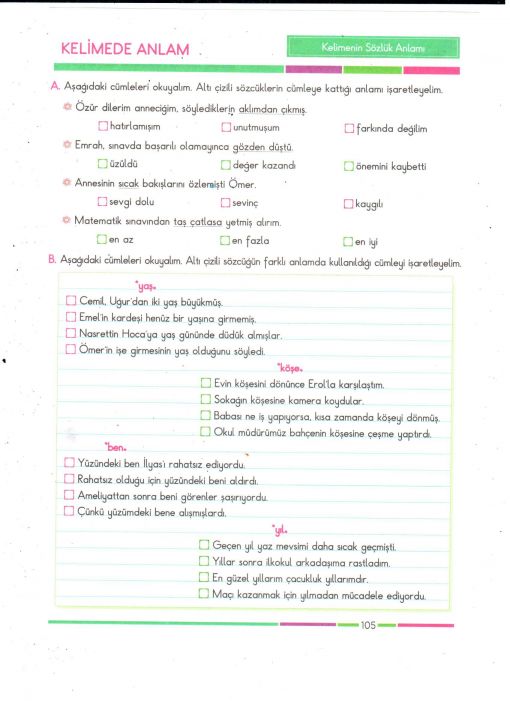 KELİMEDE ANLAM
Kelimenin Sözlük Anlamı
A. Aşağıdaki cümleleri okuyalım. Altı çizili sözcüklerin cümleye kattığı anlamı işaretleyelim.
Özür dilerim anneciğim, söylediklerin aklımdan çıkmış.
hatırlamışım unutmuşum farkında değilim
Emrah, sınavda başarılı olamayınca gözden düştü.
üzüldü değer kazandı önemini kaybetti
Annesinin sıcak bakışlarını özlemişti Ömer.
sevgi dolu sevinç kaygılı
Matematik sınavından taş çatlasa yetmiş alırım.
en az en fazla en iyi
B. Aşağıdaki cümleleri okuyalım. Altı çizili sözcüğün farklı anlamda kullanıldığı cümleyi işaretleyelim.
"yaş"
Cemil, Uğur'dan iki yaş büyükmüş.
Emel'in kardeşi henüz bir yaşına girmemiş.
Nasrettin Hoca'ya yaş gününde düdük almışlar.
Ömer'in işe girmesinin yaş olduğunu söyledi.
"köşe"
Evin köşesini dönünce Erol'la karşılaştım.
Sokağın köşesine kamera koydular.
Babası ne iş yapıyorsa, kısa zamanda köşeyi dönmüş.
Okul müdürümüz bahçenin köşesine çeşme yaptırdı.
"ben"
Yüzündeki ben İlyas'ı rahatsız ediyordu.
Rahatsız olduğu için yüzündeki beni aldırdı.
Ameliyattan sonra beni görenler şaşırıyordu.
Çünkü yüzümdeki bene alışmışlardı.
"yıl"
Geçen yıl yaz mevsimi daha sıcak geçmişti.
Yıllar sonra ilkokul arkadaşıma rastladım.
En güzel yıllarım çacukluk yıllarımdır.
Maçı kazanmak için yılmadan mücadele ediyordu.
105